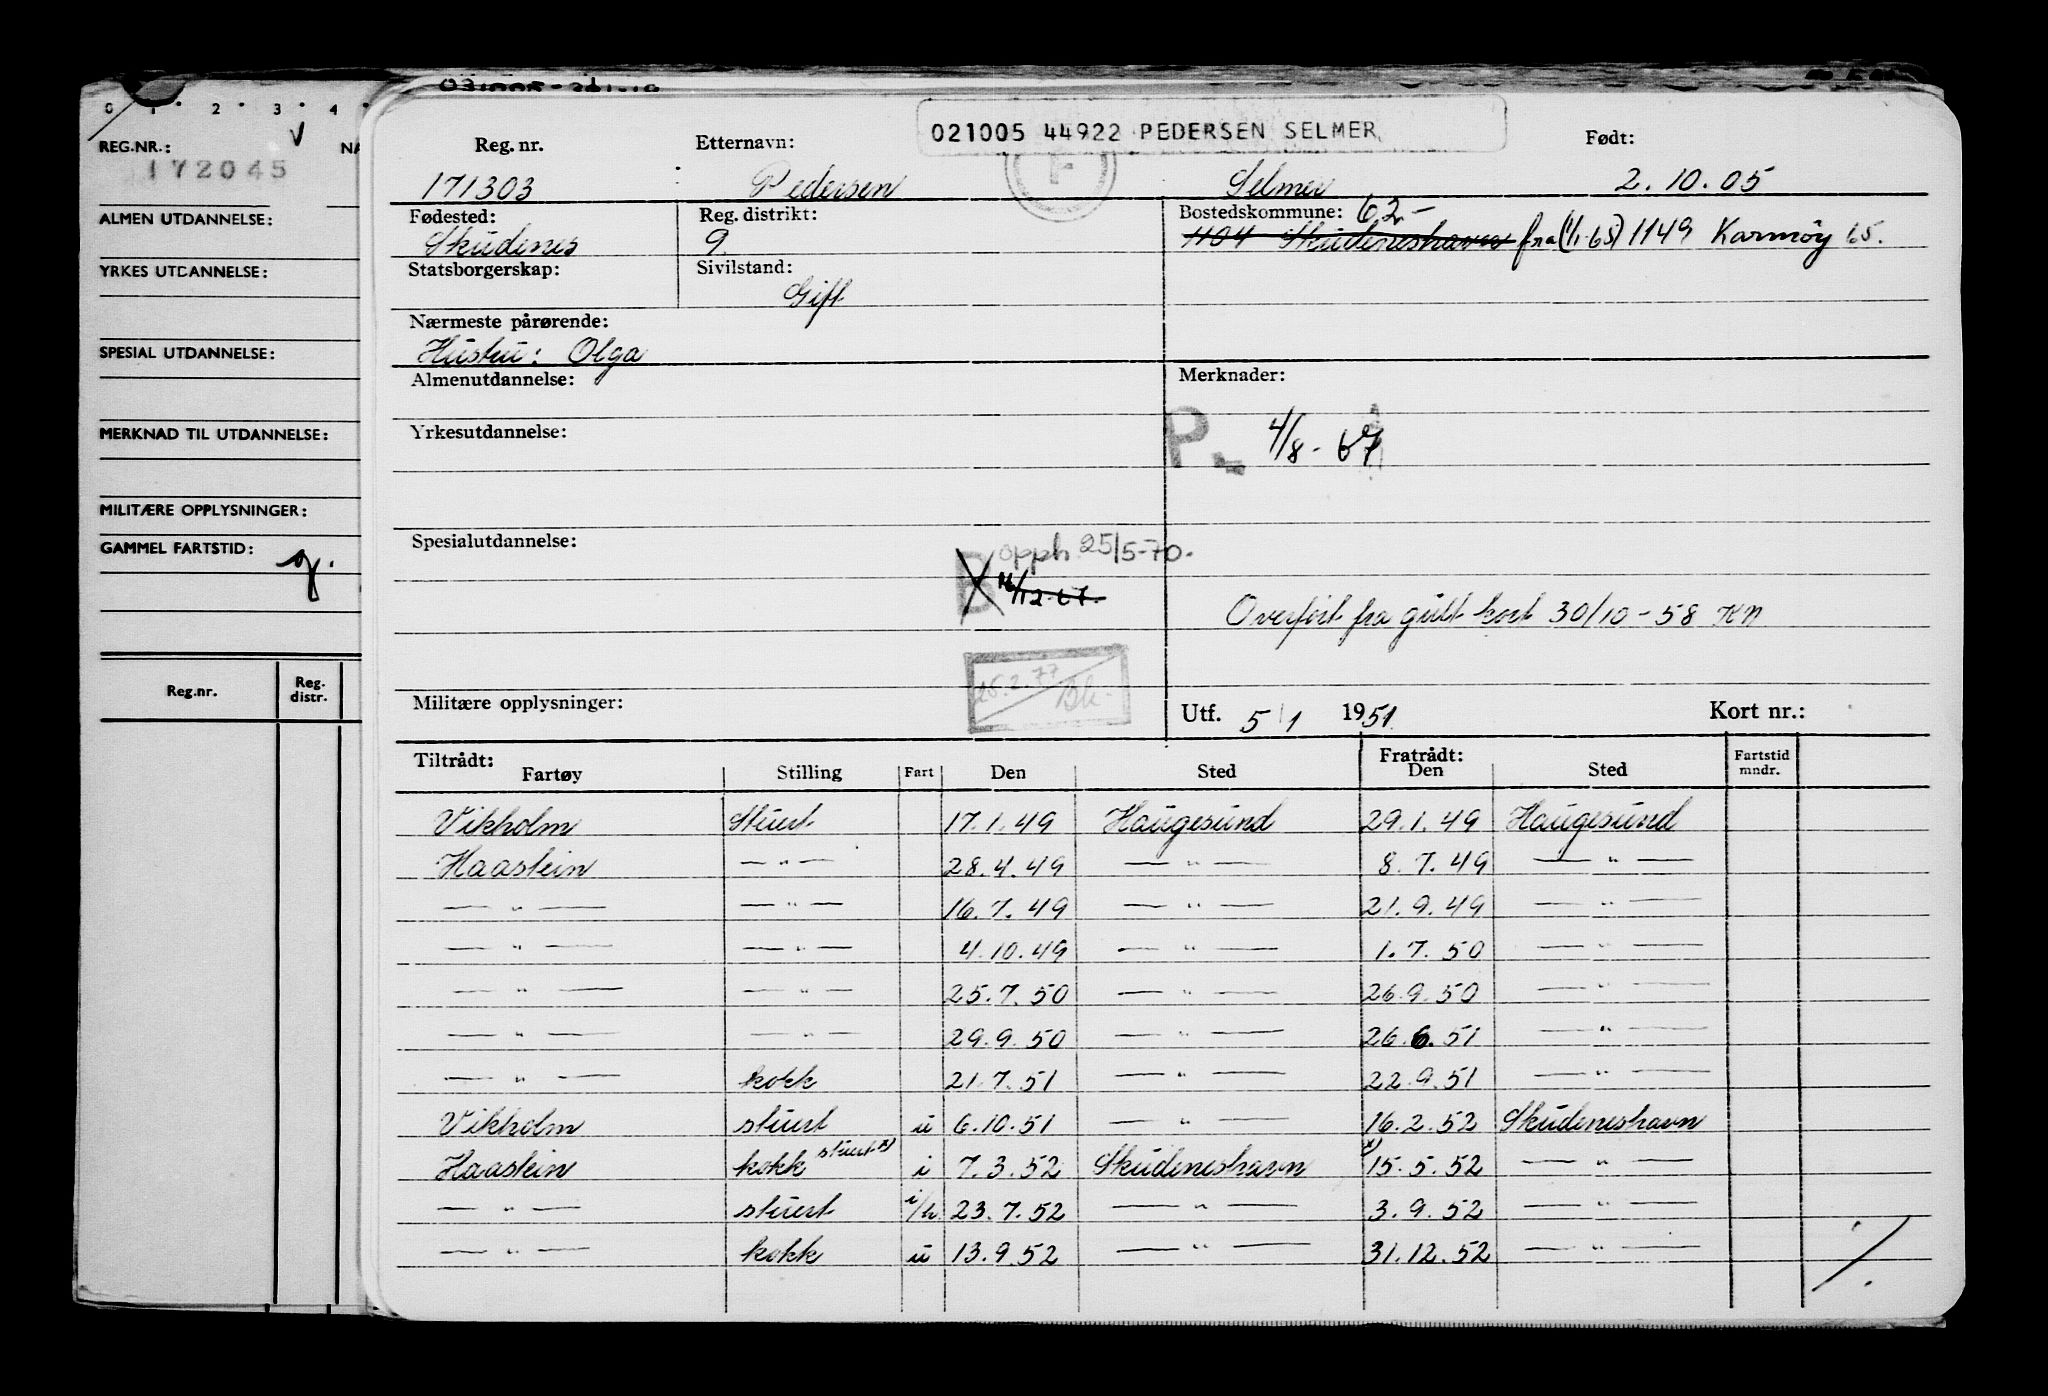 0 1 2 3 4
REG.NR.:
172045
ALMEN UTDANNELSE:
YRKES UTDANNELSE:
SPESIAL UTDANNELSE:
MERKNAD TIL UTDANNELSE:
MILITÆRE OPPLYSNINGER:
GAMMEL FARTSTID:
Reg.nr. Reg. distr.
021005 44922 PEDERSEN SELMER
Reg. nr. Etternavn: Født:
171303 Pedersen Selmer 2.10.05
F
Fødested: Reg. distrikt: Bostedskommune: 62-
Skudenes 9. 1104 Skudeneshavn fra (1/1-65) 1149 Karmøy 65.
Statsborgerskap: Sivilstand:
Gift
Nærmeste pårørende:
Hustru: Olga
Almenutdannelse: Merknader:
P- 4/8-67
Yrkesutdannelse:
Spesialutdannelse:
B opph 25/5-70.
Overført fra gult kort 30/10-58 KN
25.2.77 Bk-
Militære opplysninger: Utf. 5/1 1951 Kort nr.:
Tiltrådt: Fratrådt:
Fartøy Stilling Fart Den Sted Den Sted Fartstid mndr.
Vikholm Stuert 17.1.49 Haugesund 29.1.49 Haugesund
Haastein —"— 28.4.49 —"— 8.7.49 —"—
—"— —"— 16.7.49 —"— 21.9.49 —"—
—"— —"— 4.10.49 —"— 1.7.50 —"—
—"— —"— 25.7.50 —"— 26.9.50 —"—
—"— —"— 29.9.50 —"— 26.6.51 —"—
—"— kokk 21.7.51 —"— 22.9.51 —"—
Vikholm stuert u 6.10.51 —"— 16.2.52 Skudeneshavn
Haastein kokk stuert x) i 7.3.52 Skudeneshavn x) 15.5.52 —"—
—"— stuert i/u 23.7.52 —"— 3.9.52 —"—
—"— kokk u 13.9.52 —"— 31.12.52 —"—